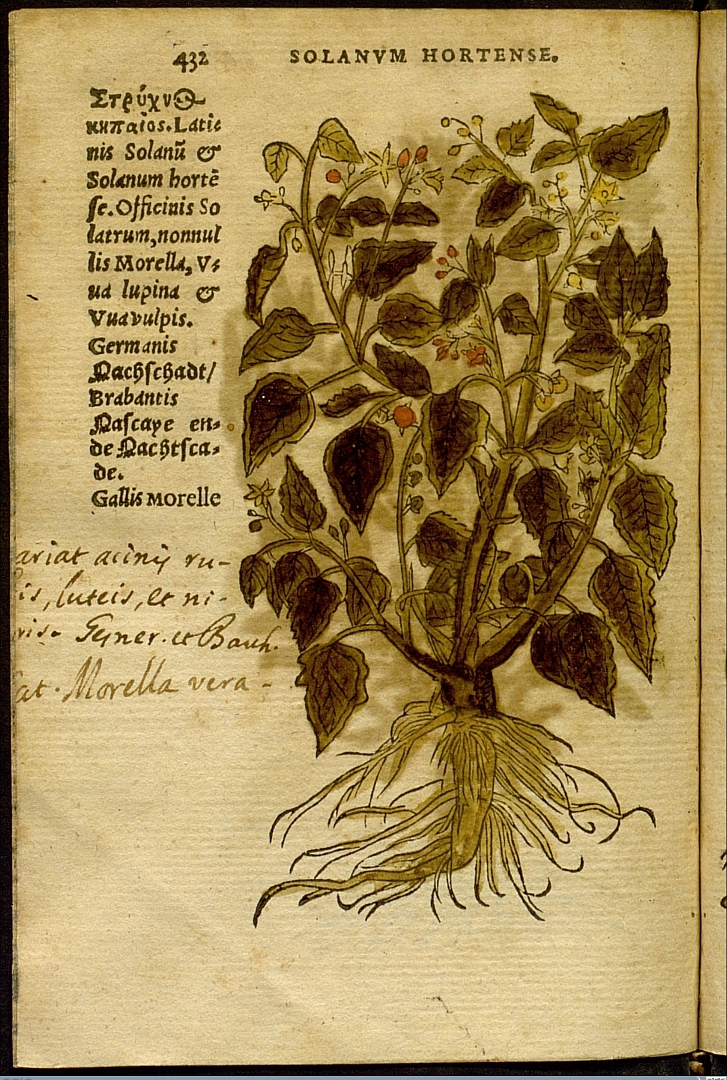 432 SOLANVM HORTENSE.
Στρύχνος
κηπαῖος. Latiċ
nis Solanũ &
Solanum hortē
se. Officinis So
latrum, nonnul
lis Morella, V⸗
ua lupina &
Vua vulpis.
Germanis
Nachschadt/
Brabantis
Nascaye en⸗
de Nachtsca⸗
de.
Gallis Morelle
ariat acinis ru-
is, luteis, et ni-
ris. Gesner. et Bauh.
at. Morella vera -